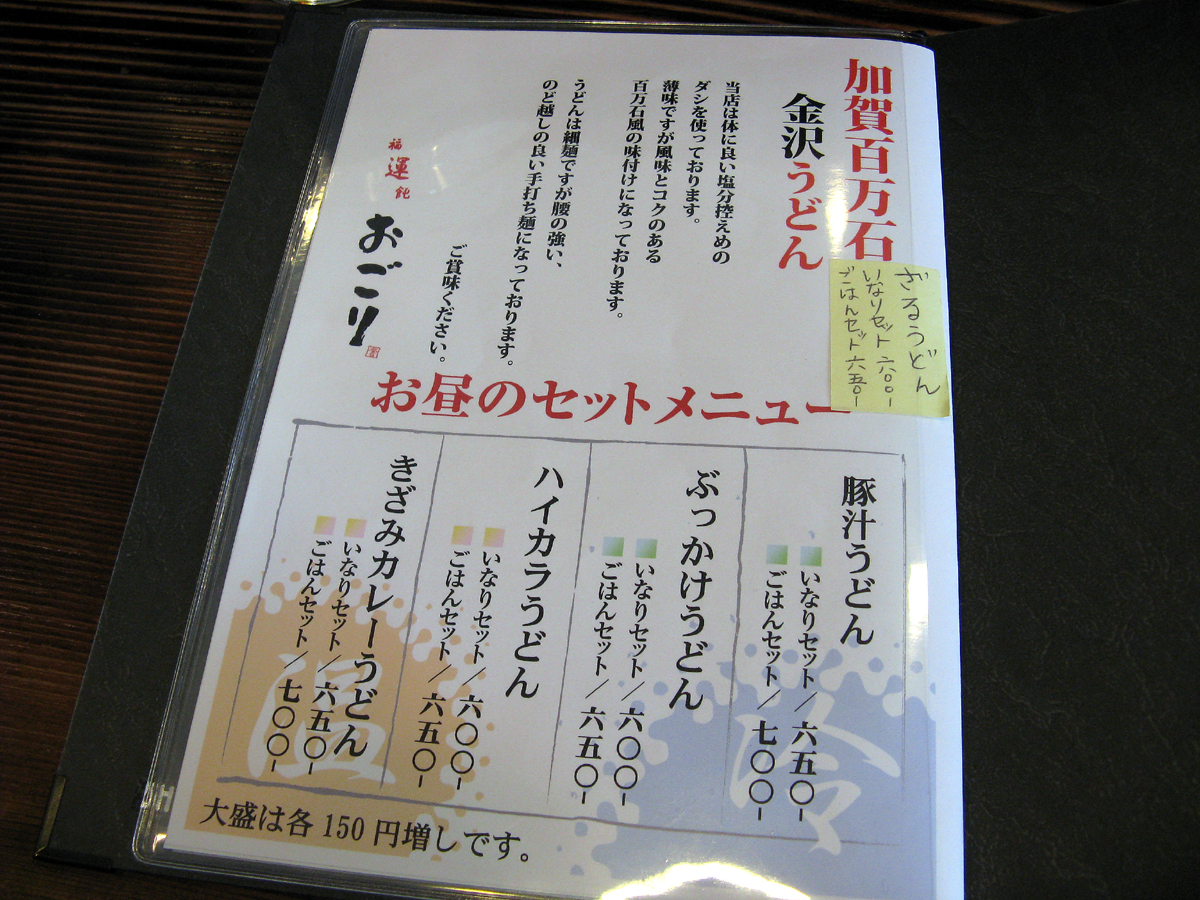 加賀百万石
金沢うどん
当店は体に良い塩分控えめの
ダシを使っております。
薄味ですが風味とコクのある
百万石風の味付けになっております。
うどんは細麺ですが腰の強い、
のど越しの良い手打ち麺になっております。
ご賞味ください。
福運飩
おごり
ざるうどん
いなりセット 六〇〇-
ごはんセット 六五〇-
お昼のセットメニュー
豚汁うどん
いなりセット/六五〇-
ごはんセット/七〇〇-
ぶっかけうどん
いなりセット/六〇〇-
ごはんセット/六五〇-
ハイカラうどん
いなりセット/六〇〇-
ごはんセット/六五〇-
きざみカレーうどん
いなりセット/六五〇-
ごはんセット/七〇〇-
冷
温
大盛は各150円増しです。